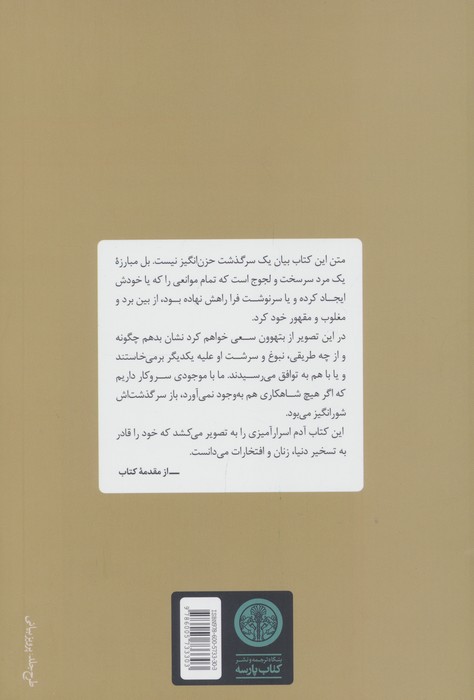 متن این کتاب بیان یک سرگذشت حزن‌انگیز نیست. بل مبارزهٔ
یک مرد سرسخت و لجوج است که تمام موانعی را که یا خودش
ایجاد کرده و یا سرنوشت فرا راهش نهاده بود، از بین برد و
مغلوب و مقهور خود کرد.
در این تصویر از بتهوون سعی خواهم کرد نشان بدهم چگونه
و از چه طریقی، نبوغ و سرشت او علیه یکدیگر برمی‌خاستند
و یا با هم به توافق می‌رسیدند. ما با موجودی سروکار داریم
که اگر هیچ شاهکاری هم به‌وجود نمی‌آورد، باز سرگذشت‌اش
شورانگیز می‌بود.
این کتاب آدم اسرارآمیزی را به تصویر می‌کشد که خود را قادر
به تسخیر دنیا، زنان و افتخارات می‌دانست.
ــ از مقدمهٔ کتاب
بنگاه ترجمه و نشر
کتاب پارسه
9786005733303
طرح جلد: پرویز بیانی